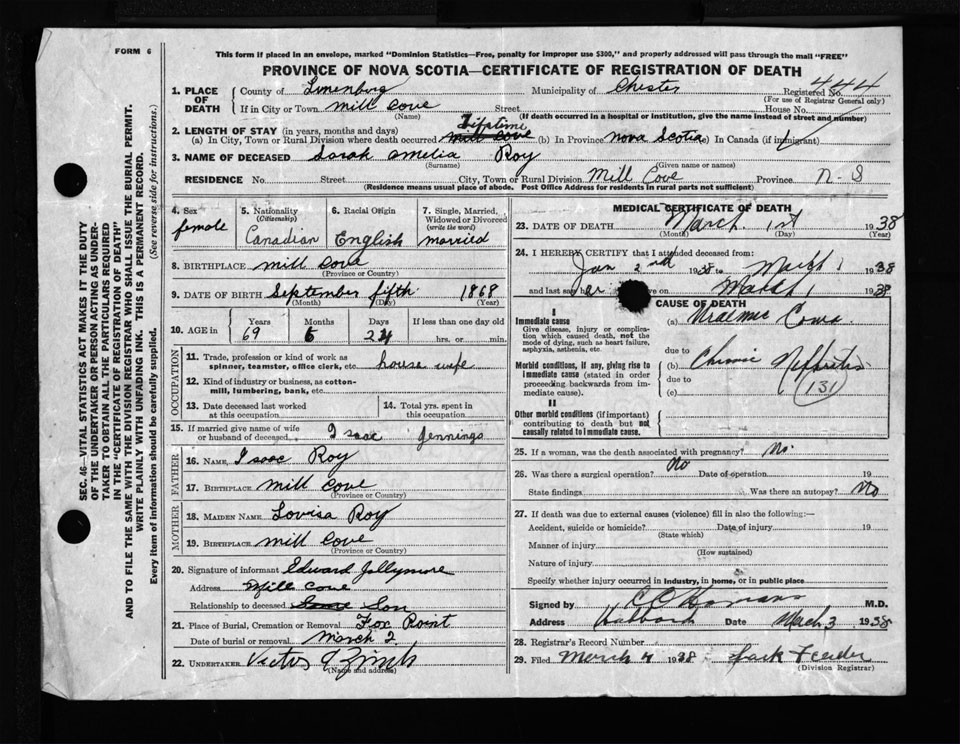 FORM 6
This form if placed in an envelope, marked "Dominion Statistics—Free, penalty for improper use $300," and properly addressed will pass through the mail "FREE"
PROVINCE OF NOVA SCOTIA—CERTIFICATE OF REGISTRATION OF DEATH
SEC. 46—VITAL STATISTICS ACT MAKES IT THE DUTY
OF THE UNDERTAKER OR PERSON ACTING AS UNDER-
TAKER TO OBTAIN ALL THE PARTICULARS REQUIRED
IN THE "CERTIFICATE OF REGISTRATION OF DEATH"
AND TO FILE THE SAME WITH THE DIVISION REGISTRAR WHO SHALL ISSUE THE BURIAL PERMIT.
WRITE PLAINLY WITH UNFADING INK. THIS IS A PERMANENT RECORD.
Every item of information should be carefully supplied. (See reverse side for instructions.)
1. PLACE OF DEATH County of Lunenburg Municipality of Chester Registered No. 444
(For use of Registrar General only)
If in City or Town Mill Cove Street House No.
(Name) (If death occurred in a hospital or institution, give the name instead of street and number)
2. LENGTH OF STAY (in years, months and days) Lifetime
(a) In City, Town or Rural Division where death occurred Mill Cove (b) In Province Nova Scotia (c) In Canada (if immigrant)
3. NAME OF DECEASED Sarah Amelia Roy
(Surname) (Given name or names)
RESIDENCE No. Street City, Town or Rural Division Mill Cove Province N.S
(Residence means usual place of abode. Post Office Address for residents in rural parts not sufficient)
4. Sex female
5. Nationality (Citizenship) Canadian
6. Racial Origin English
7. Single, Married, Widowed or Divorced (write the word) married
8. BIRTHPLACE Mill Cove
(Province or Country)
9. DATE OF BIRTH September fifth 1868
(Month) (Day) (Year)
10. AGE in Years Months Days If less than one day old
69 5 24 hrs. or min.
OCCUPATION
11. Trade, profession or kind of work as spinner, teamster, office clerk, etc. house wife
12. Kind of industry or business, as cotton-mill, lumbering, bank, etc.
13. Date deceased last worked at this occupation
14. Total yrs. spent in this occupation
15. If married give name of wife or husband of deceased Isaac Jennings
FATHER
16. NAME Isaac Roy
17. BIRTHPLACE Mill Cove
(Province or Country)
MOTHER
18. MAIDEN NAME Lovisa Roy
19. BIRTHPLACE Mill Cove
(Province or Country)
20. Signature of informant Edward Jollymore
Address Mill Cove
Relationship to deceased Son
21. Place of Burial, Cremation or Removal Fox Point
Date of burial or removal March 2
22. UNDERTAKER Victor
(Name and address)
MEDICAL CERTIFICATE OF DEATH
23. DATE OF DEATH March 1st 1938
(Month) (Day) (Year)
24. I HEREBY CERTIFY that I attended deceased from:
Jan 2nd 1938 to March 1 1938
and last saw her alive on March 1 1938
CAUSE OF DEATH
I
Immediate cause
Give disease, injury or complication which caused death, not the mode of dying, such as heart failure, asphyxia, asthenia, etc.
(a) Uraemic Coma
due to
Morbid conditions, if any, giving rise to immediate cause (stated in order proceeding backwards from immediate cause).
(b) Chronic Nephritis
due to (131)
(c)
II
Other morbid conditions (if important) contributing to death but not causally related to immediate cause.
25. If a woman, was the death associated with pregnancy? No
26. Was there a surgical operation? No Date of operation 19
State findings Was there an autopsy? No
27. If death was due to external causes (violence) fill in also the following:—
Accident, suicide or homicide? Date of injury 19
(State which)
Manner of injury
(How sustained)
Nature of injury
Specify whether injury occurred in industry, in home, or in public place
Signed by M.D.
Address Hubbards Date March 3 1938
28. Registrar's Record Number
29. Filed March 4 1938
(Division Registrar)